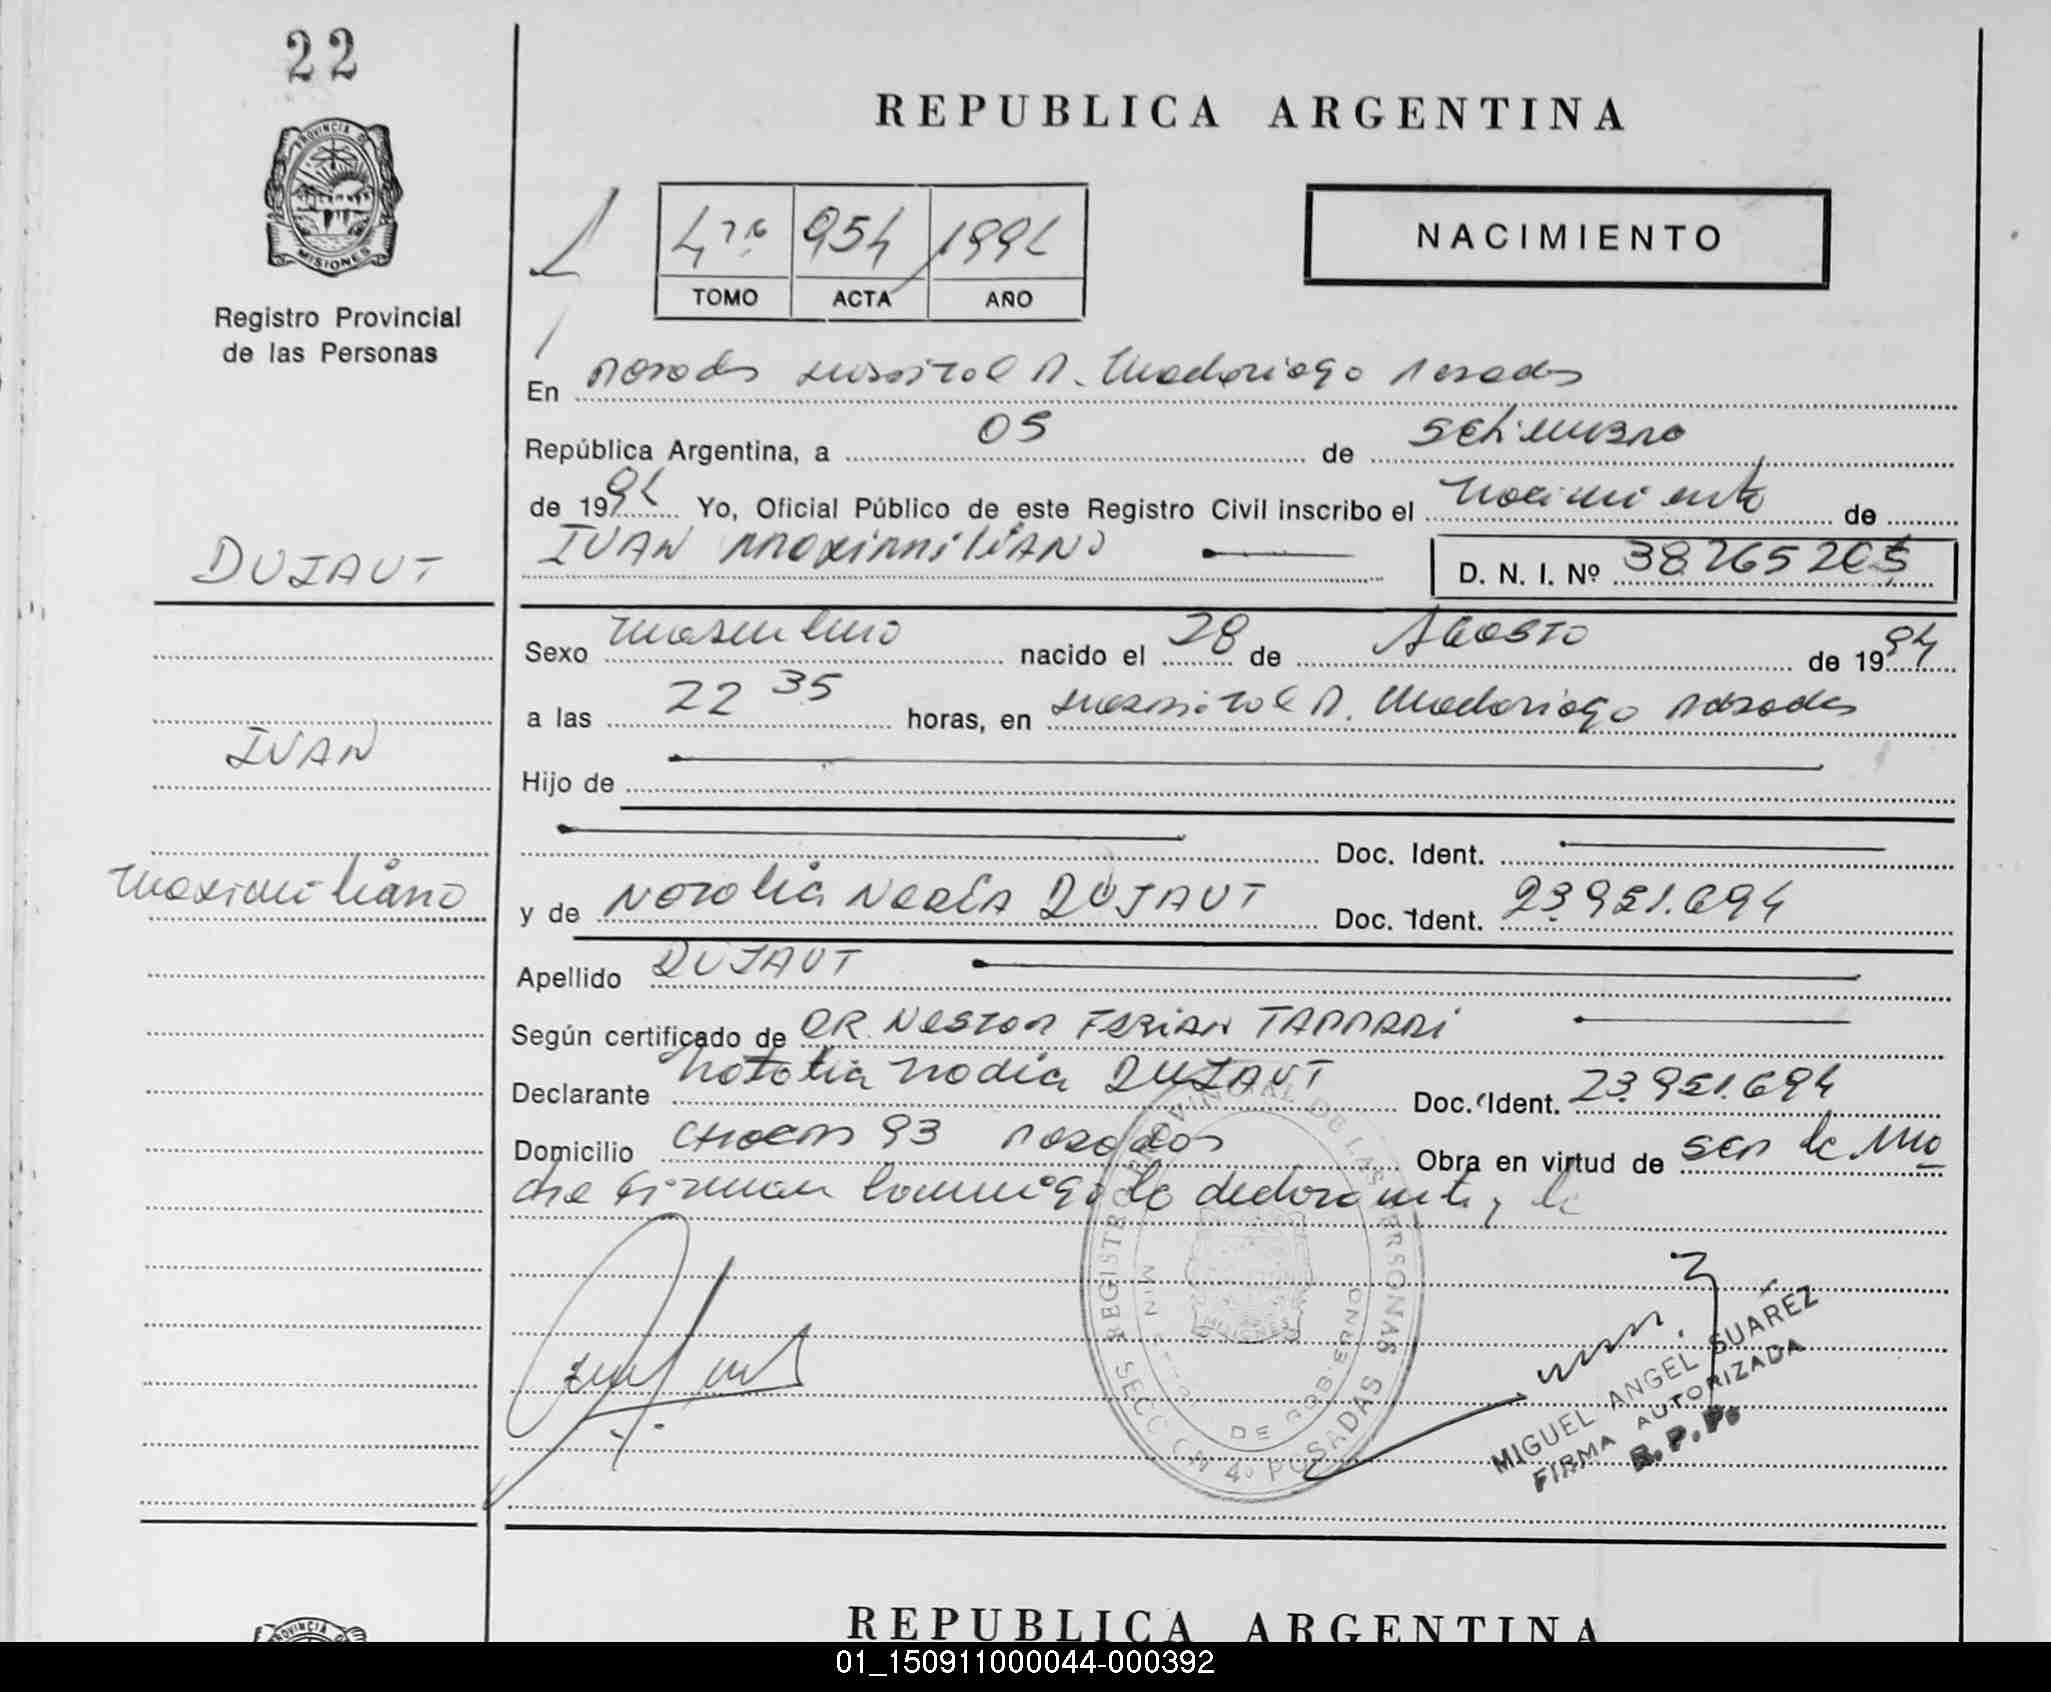 22
REPUBLICA ARGENTINA
PROVINCIA DE
MISIONES
Registro Provincial
de las Personas
954 1994
TOMO ACTA AÑO
NACIMIENTO
En Posadas Hospital R. Madariaga Posadas
República Argentina, a 05 de Setiembre
de 1994 Yo, Oficial Público de este Registro Civil inscribo el nacimiento de
DUJAUT
IVAN MAXIMILIANO
D. N. I. Nº 38265205
Sexo masculino nacido el 28 de AGOSTO de 1994
a las 22 35 horas, en Hospital R. Madariaga Posadas
IVAN
Hijo de
Doc. Ident.
Maximiliano
y de Natalia Nadia DUJAUT Doc. Ident. 23.951.694
Apellido DUJAUT
Según certificado de DR. Nestor Fabian
Declarante Natalia Nadia DUJAUT Doc. Ident. 23.951.694
Domicilio 93 Posadas Obra en virtud de ser la ma
dre firman conmigo la declarante,
REGISTRO PROVINCIAL DE LAS PERSONAS
MISIONES
DE GOBIERNO
SECCION 4º POSADAS
MIGUEL ANGEL SUAREZ
FIRMA AUTORIZADA
R.P.P.
PROVINCIA
REPUBLICA ARGENTINA
01_150911000044-000392